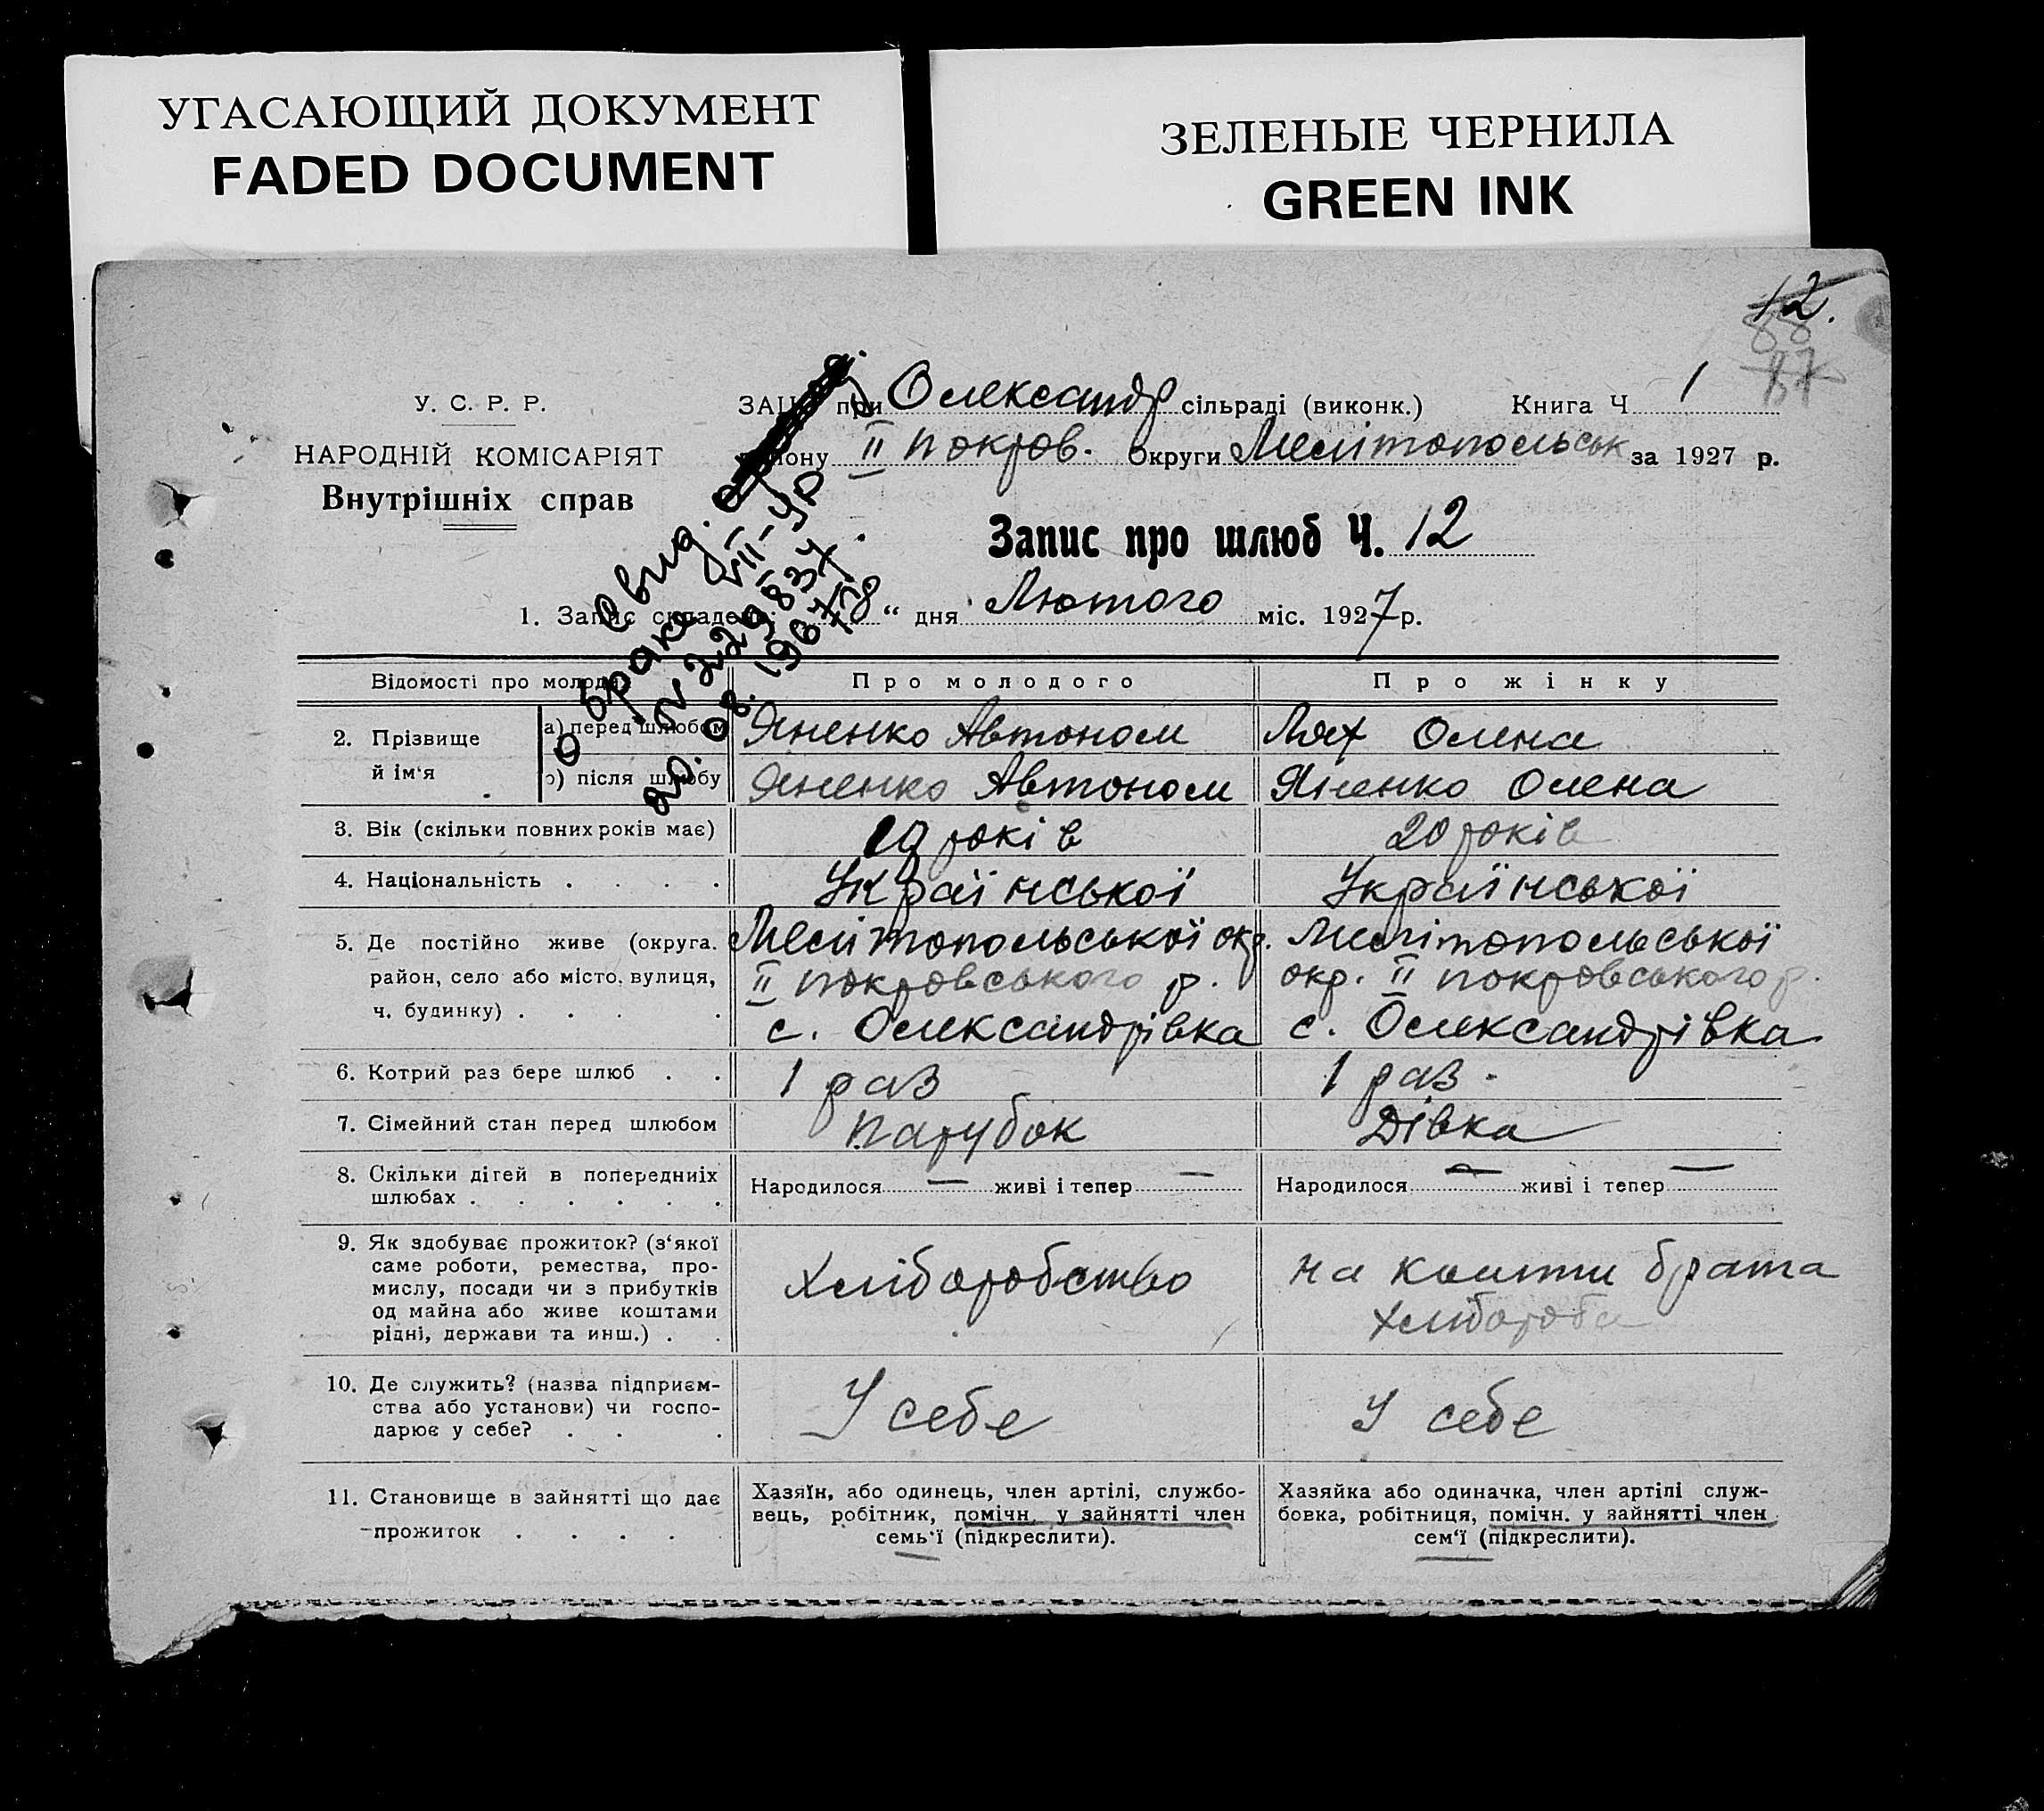 УГАСАЮЩИЙ ДОКУМЕНТ
FADED DOCUMENT
ЗЕЛЕНЫЕ ЧЕРНИЛА
GREEN INK
12.
88
87
У. С. Р. Р.
НАРОДНІЙ КОМІСАРІЯТ
Внутрішніх справ
ЗАЦС при Олександр сільраді (виконк.) Книга Ч 1
району II Покров. Округи Мелітопольськ за 1927 р.
Запис про шлюб Ч. 12
1. Запис складено 8 “ дня Лютого міс. 1927 р.
Свид.
о браке VIII-УР
N 329837.
20. 08. 1967
Відомості про молодих
Про молодого
Про жінку
2. Прізвище й ім‘я
а) перед шлюбом Яненко Автоном Лях Олена
б) після шлюбу Яненко Автоном Яненко Олена
3. Вік (скільки повних років має) 19 років 20 років
4. Національність . . . . Української Української
5. Де постійно живе (округа. район, село або місто, вулиця, ч. будинку) . . . .
Мелітопольської окр.
II Покровського р.
с. Олександрівка
Мелітопольської
окр. II Покровського р.
с. Олександрівка
6. Котрий раз бере шлюб . . 1 раз 1 раз.
7. Сімейний стан перед шлюбом Парубок Дівка
8. Скільки дітей в попередниіх
шлюбах . . . . . .
Народилося — живі і тепер —
Народилося — живі і тепер —
9. Як здобуває прожиток? (з‘якої
саме роботи, ремества, про-
мислу, посади чи з прибутків
од майна або живе коштами
рідні, держави та инш.) . .
Хліборобство
на кошти брата
хлібороба
10. Де служить? (назва підприєм-
ства або установи) чи госпо-
дарює у себе? . . .
У себе
У себе
11. Становище в зайнятті що дає
прожиток . . . . .
Хазяїн, або одинець, член артілі, службо-
вець, робітник, помічн. у зайнятті член
семь‘ї (підкреслити).
Хазяйка або одиначка, член артілі служ-
бовка, робітниця, помічн. у зайнятті член
сем‘ї (підкреслити).